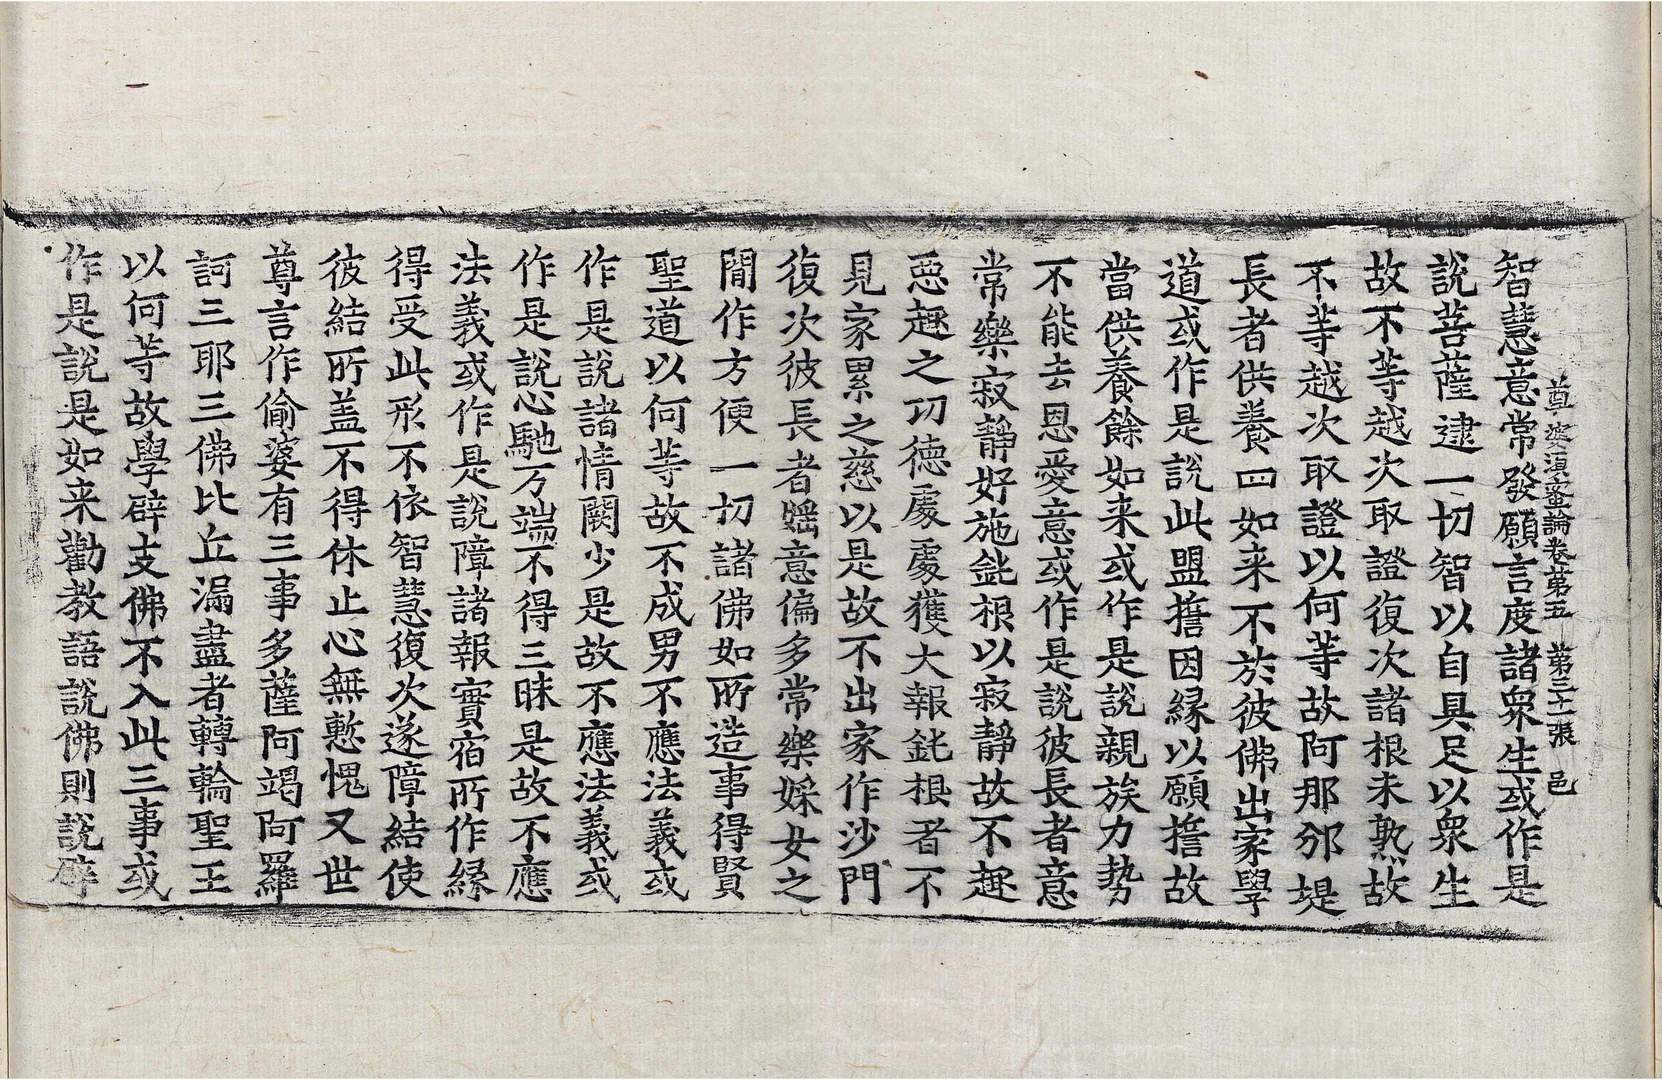 尊婆湏蜜論卷第五 第三十二張 邑
智慧意常發願言度諸衆生或作是
說菩薩逮一切智以自具足以衆生
故不等越次取證復次諸根未熟故
不等越次取證以何等故阿那邠堤
長者供養四如来不於彼佛出家學
道或作是說此盟擔因緣以願擔故
當供養餘如来或作是說親族力勢
不能去恩愛意或作是說彼長者意
常樂寂靜好施鈍根以寂靜故不趣
惡趣之功德處處獲大報鈍根者不
見家累之慈以是故不出家作沙門
復次彼長者婬意偏多常樂婇女之
閒作方便一切諸佛如所造事得賢
聖道以何等故不成男不應法義或
作是說諸情闕少是故不應法義或
作是說心馳万端不得三昧是故不應
法義或作是說障諸報實宿所作緣
得受此形不依智慧復次遂障結使
彼結所盖不得休止心無慙愧又世
尊言作偷婆有三事多薩阿竭阿羅
訶三耶三佛比丘漏盡者轉輪聖王
以何等故學辟支佛不入此三事或
作是說是如来勸教語說佛則說辟